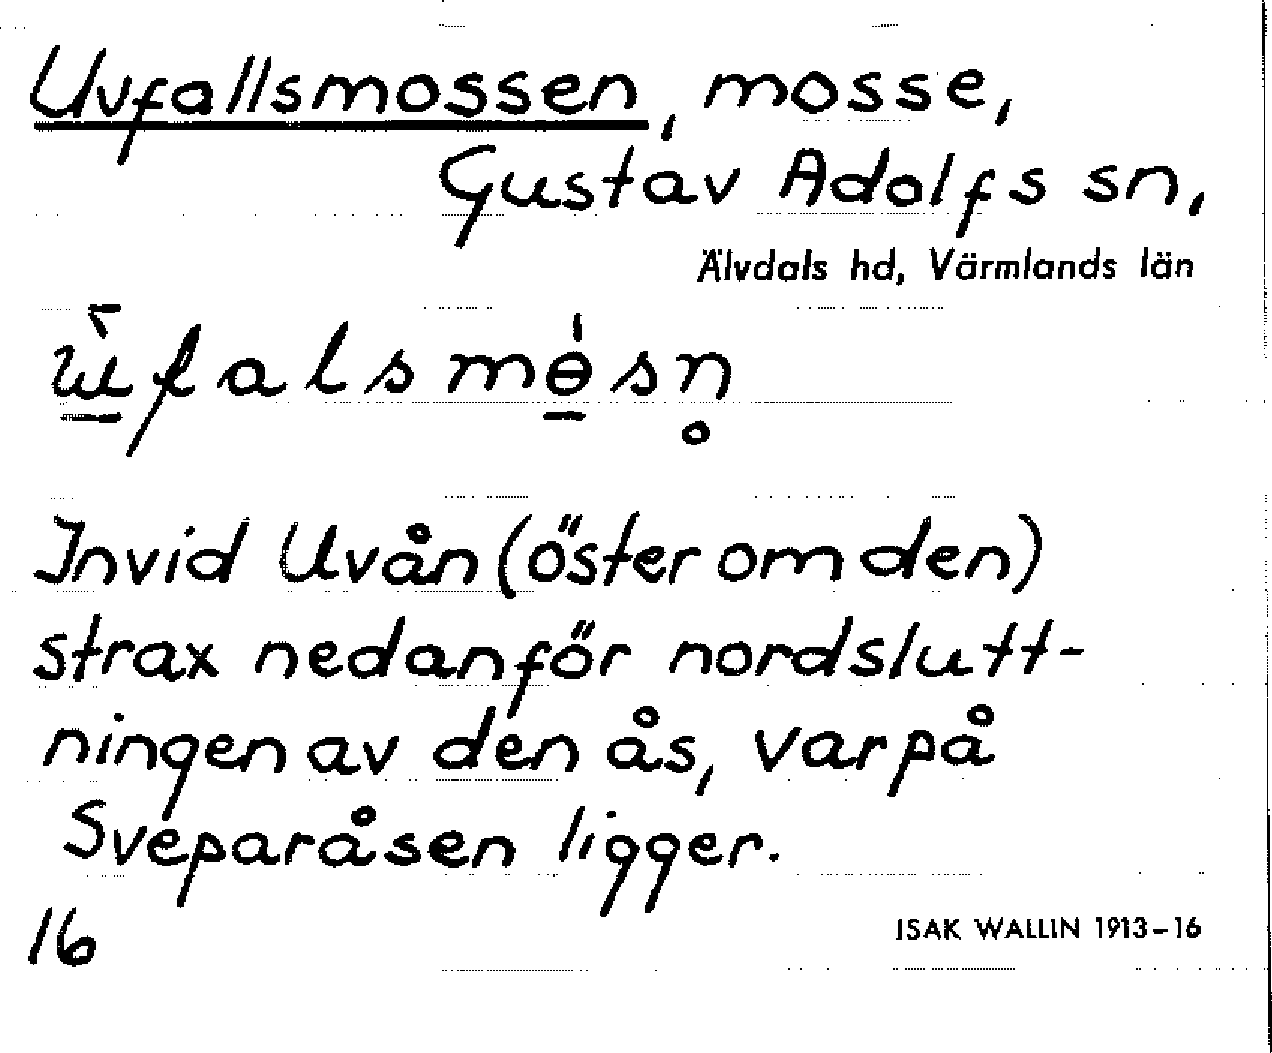 Uvfallsmossen, mosse,
Gustav Adolfs sn,
Älvdals hd, Värmlands län
Invid Uvån (öster om den)
strax nedanför nordslutt-
ningen av den ås, varpå
Sveparåsen ligger.
16
ISAK WALLIN 1913-16